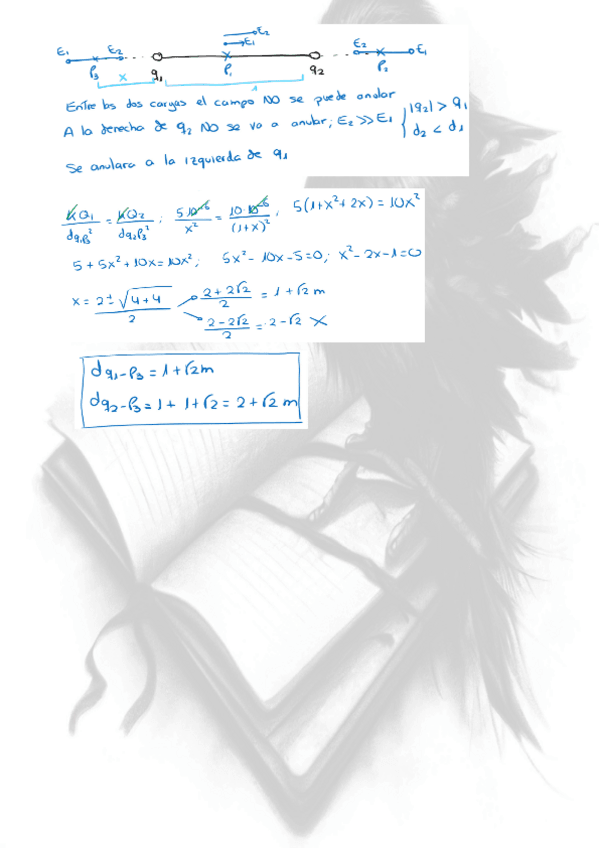 E₂
E₁
E₁ E₂ E₂ E₁
P₃ x q₁ P₁ q₂ P₂
1
Entre las dos cargas el campo NO se puede anular
A la derecha de q₂ NO se va a anular; E₂ >> E₁ { |q₂| > q₁
d₂ < d₁
Se anulara a la izquierda de q₁
KQ₁/dq₁P₃² = KQ₂/dq₂P₃² ; 5·10⁻⁶/x² = 10·10⁻⁶/(1+x)² ; 5(1+x²+2x) = 10x²
5 + 5x² + 10x = 10x² ; 5x² - 10x - 5 = 0 ; x² - 2x - 1 = 0
x = 2 ± √(4+4) / 2
2 + 2√2 / 2 = 1 + √2 m
2 - 2√2 / 2 = 2 - √2 X
dq₁-P₃ = 1 + √2 m
dq₂-P₃ = 1 + 1 + √2 = 2 + √2 m